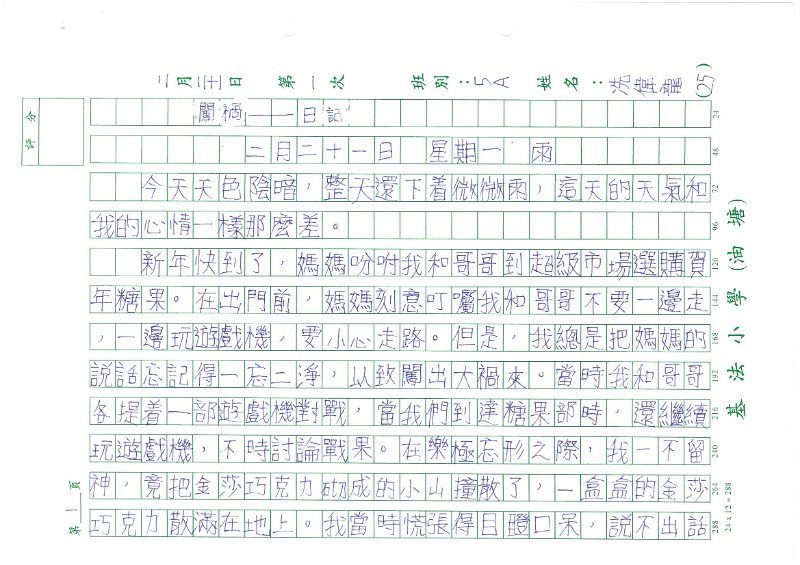 二月二十一日 第一次 班別：5A 姓名：冼偉 (25)
評分
闖禍——日記 24
二月二十一日 星期一 雨 48
今天天色陰暗，整天還下着微微雨，這天的天氣和 72
我的心情一樣那麼差。 96
新年快到了，媽媽吩咐我和哥哥到超級市場選購賀 120
年糖果。在出門前，媽媽刻意叮囑我和哥哥不要一邊走 144
，一邊玩遊戲機，要小心走路。但是，我總是把媽媽的 168
說話忘記得一忘二淨，以致闖出大禍來。當時我和哥哥 192
各提着一部遊戲機對戰，當我們到達糖果部時，還繼續 216
玩遊戲機，不時討論戰果。在樂極忘形之際，我一不留 240
神，竟把金莎巧克力砌成的小山撞散了，一盒盒的金莎 264
巧克力散滿在地上。我當時慌張得目瞪口呆，說不出話 288
第1頁
24 x 12 = 288
基法小學(油塘)